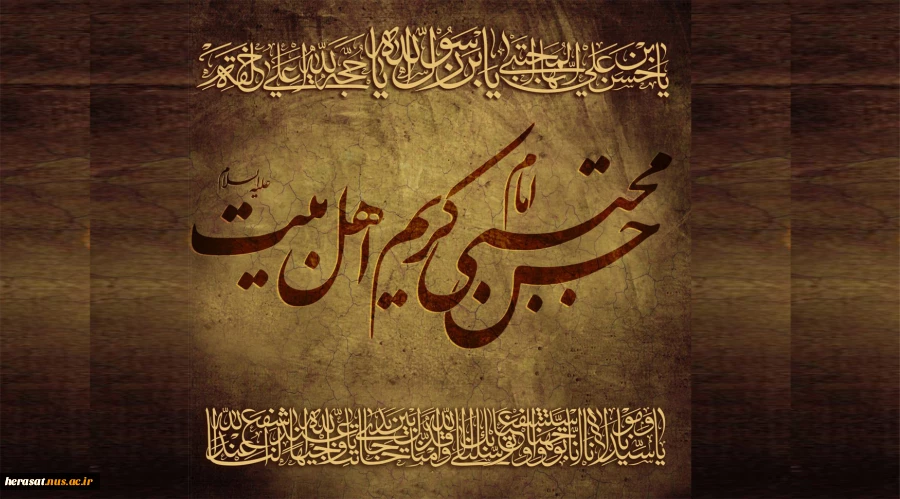 یا حسن بن علی ایها المجتبی یابن رسول الله یا حجة الله علی خلقه
امام حسن مجتبی کریم اهل بیت علیه السلام
یا سیدنا و مولانا انا توجهنا و استشفعنا و توسلنا بک الی الله و قدمناک بین یدی حاجاتنا یا وجیها عند الله اشفع لنا عند الله
herasat.nus.ac.ir